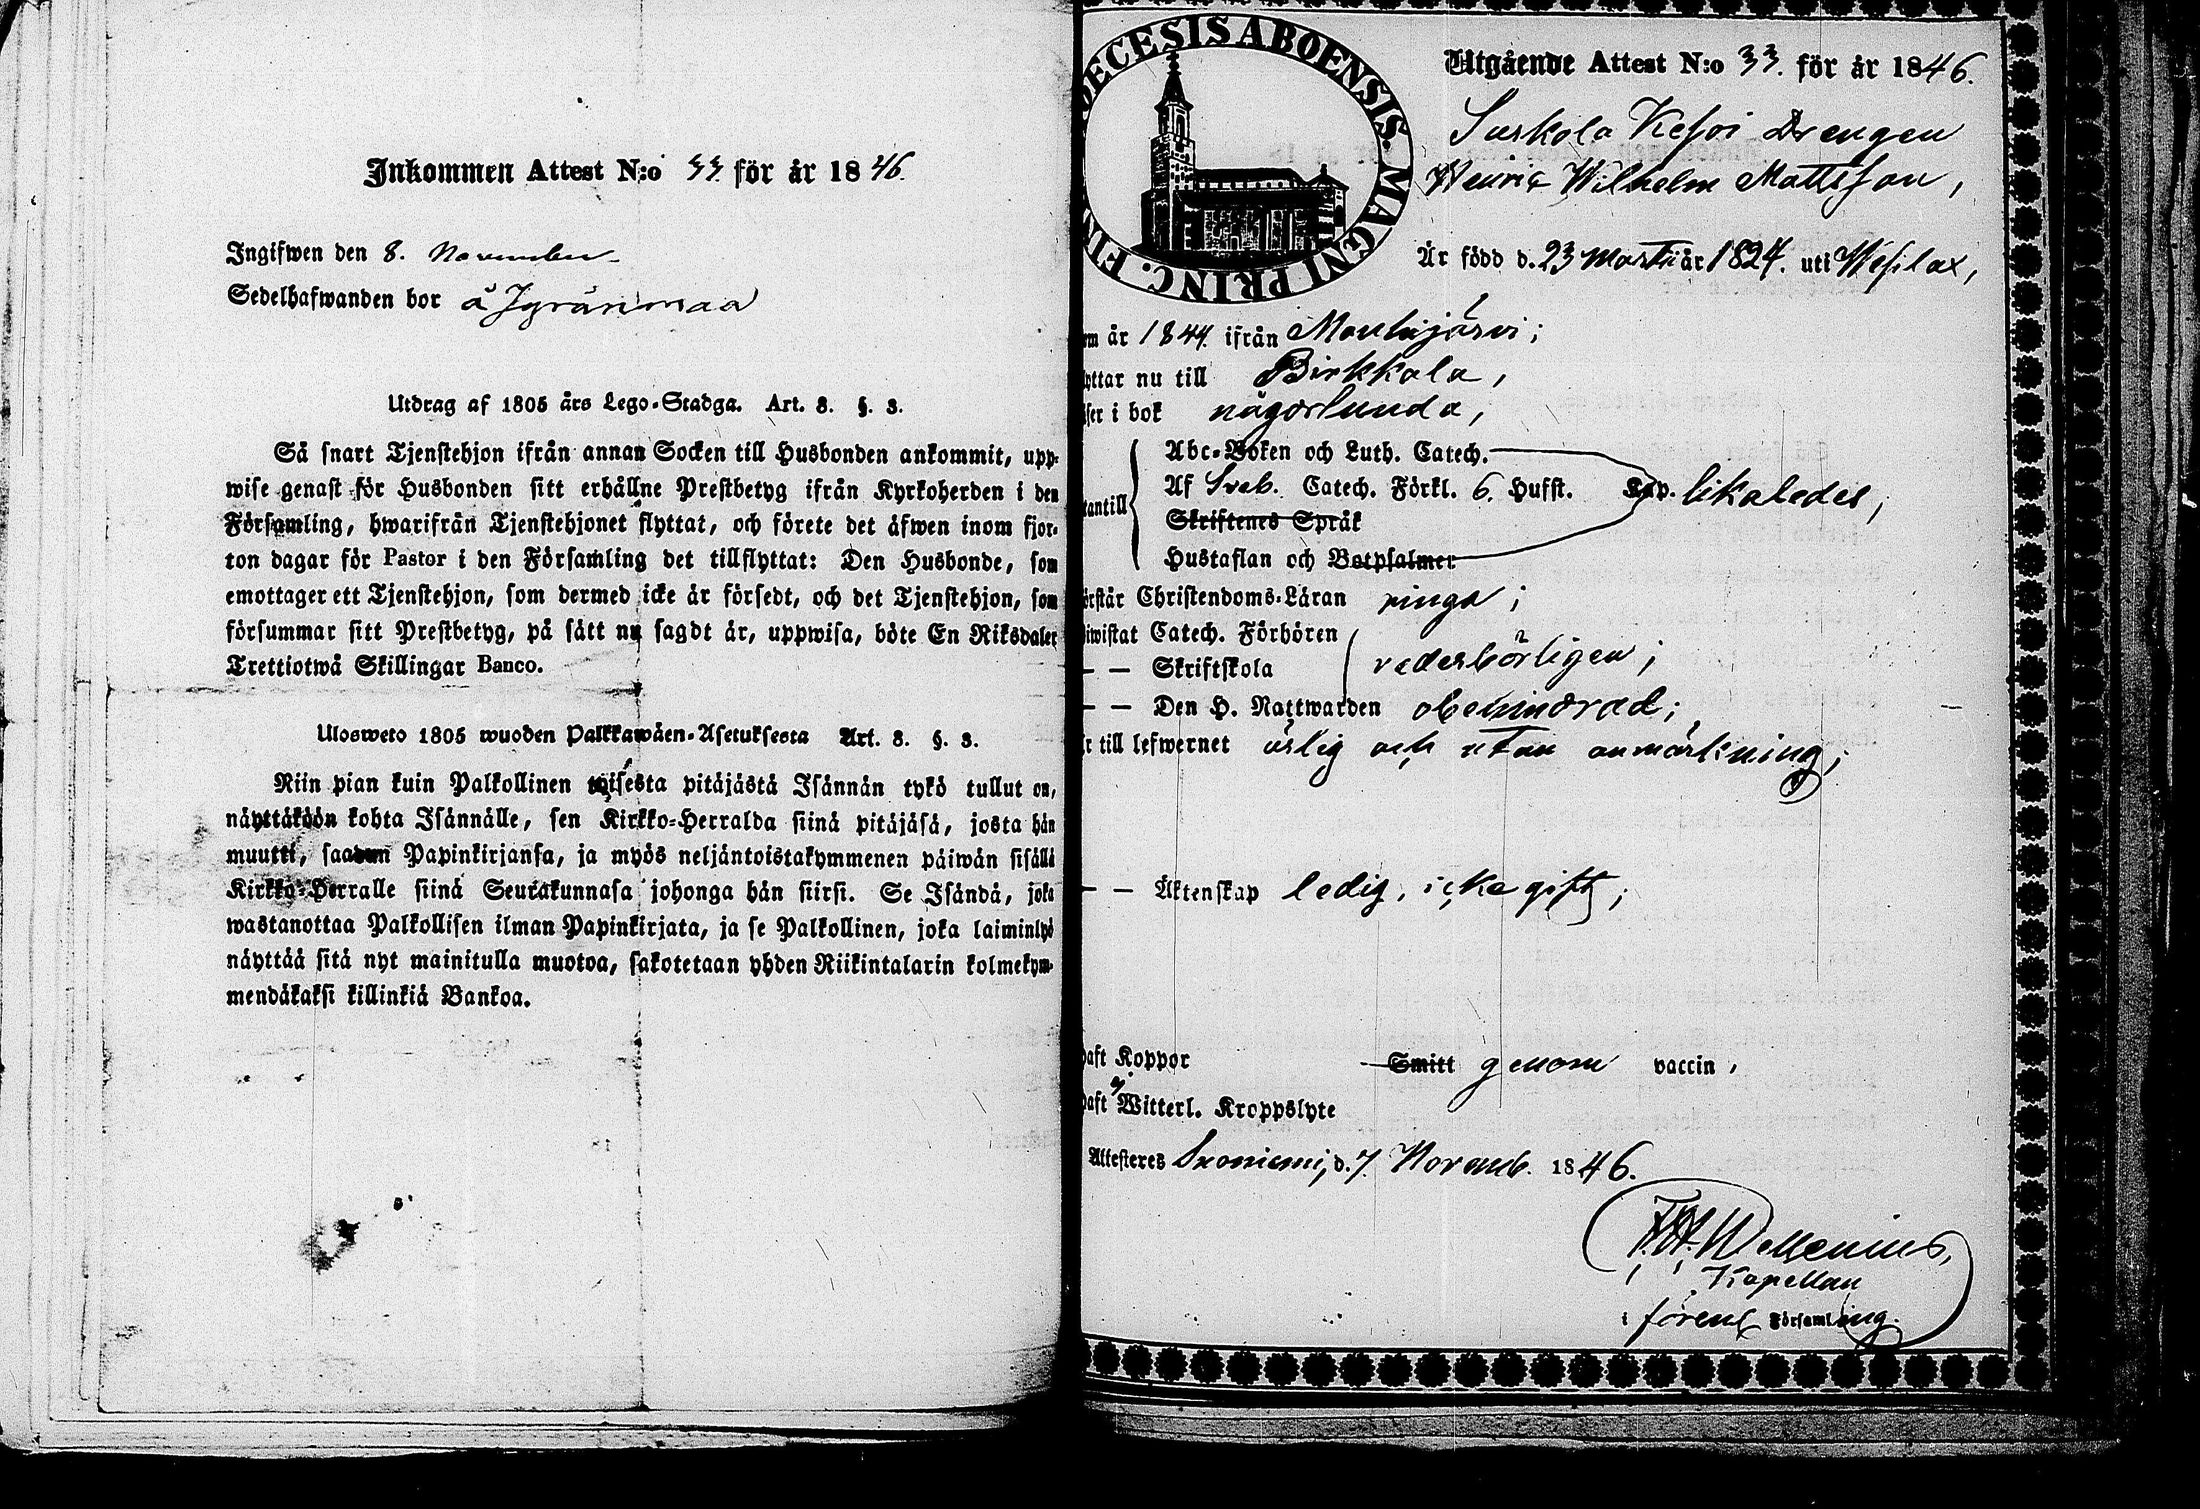 Inkommen Attest N:o 33. för år 1846.
Ingifwen den 8. November
Sedelhafwanden bor å
Utdrag af 1805 års Lego-Stadga. Art. 8. §. 3.
Så snart Tjenstehjon ifrån annan Socken till Husbonden ankommit, upp-
wise genast för Husbonden sitt erhållne Prestbetyg ifrån Kyrkoherden i den
Församling, hwarifrån Tjenstehjonet flyttat, och förete det äfwen inom fjor-
ton dagar för Pastor i den Församling det tillflyttat: Den Husbonde, som
emottager ett Tjenstehjon, som dermed icke är försedt, och det Tjenstehjon, som
försummar sitt Prestbetyg, på sätt nu sagdt är, uppwisa, böte En Riksdaler
Trettiotwå Skillingar Banco.
Ulosweto 1805 wuoden Palkkawäen-Asetuksesta Art. 8. §. 3.
Niin pian kuin Palkollinen toisesta pitäjästä Isännän tykö tullut on,
näyttäköön kohta Isännälle, sen Kirkko-Herralda siinä pitäjäsä, josta hän
muutti, saadun Papinkirjansa, ja myös neljäntoistakymmenen päiwän sisällä
Kirkko-Herralle siinä Seurakunnasa johonga hän siirsi. Se Isändä, joka
wastanottaa Palkollisen ilman Papinkirjata, ja se Palkollinen, joka laiminlyö
näyttää sitä nyt mainitulla muotoa, sakotetaan yhden Riikintalarin kolmekym-
mendäkaksi killinkiä Bankoa.
OECESIS ABOENSIS. MAGNI PRINC. FIN
Utgående Attest N:o 33. för år 1846.
Drengen
Henric Wilhelm Mattsson,
Är född d. 23 Martii år 1824. uti Wesilax,
om år 1844. ifrån Mouhijärvi;
yttar nu till Birkkala,
ser i bok någorlunda,
Abc-Boken och Luth. Catech.
Af Sveb. Catech. Förkl. 6. Hufst. Cap. likaledes,
tantill
Skriftenes Språk
Hustaflan och Botpsalmer
örstår Christendoms-Läran ringa;
iwistat Catech. Förhören
— — Skriftskola vederbörligen;
— — Den H. Nattwarden obehindrad;
r till lefwernet ärlig och utan anmärkning;
— — Äktenskap ledig, icke gift;
haft Koppor Smitt genom vaccin,
haft ej Witterl. Kroppslyte
Attesteres Suoniemi, d. 7. Novemb. 1846.
Wellenius,
Kapellan
i förenl Församling.